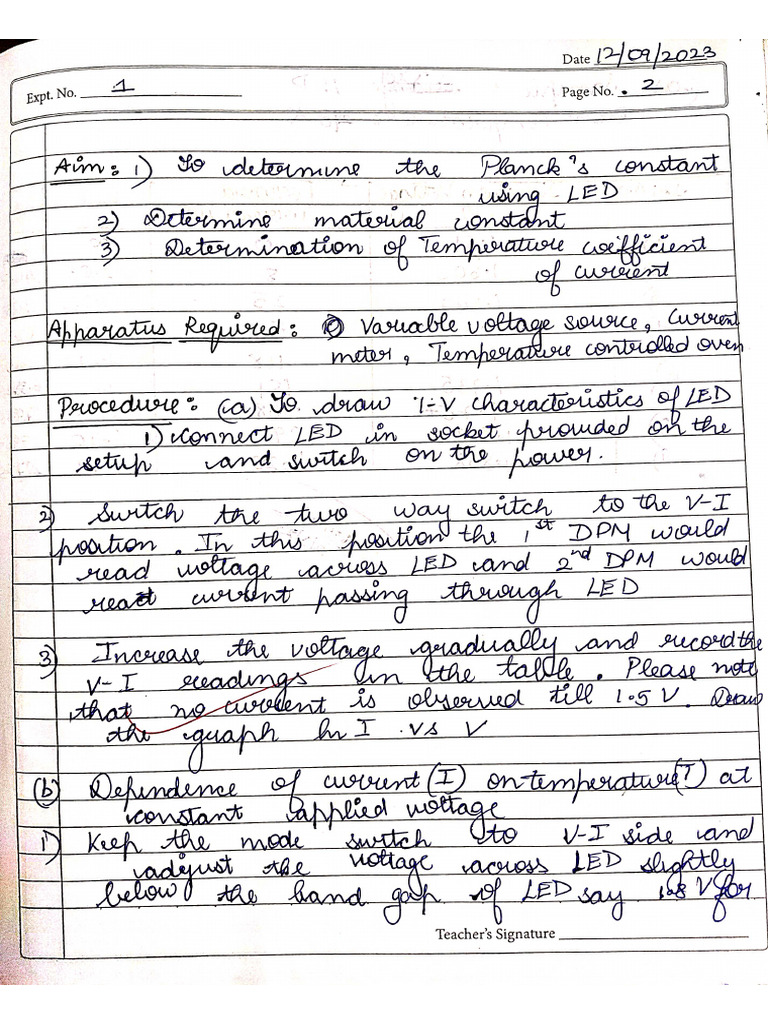 Date 12/09/2023
Expt. No. 1
Page No. 2
Aim: 1) To determine the Planck's constant
using LED
2) Determine material constant
3) Determination of Temperature coefficient
of current
Apparatus Required: Variable voltage source, Current
meter, Temperature controlled oven
Procedure: (a) To draw I-V characteristics of LED
1) Connect LED in socket provided on the
setup and switch on the power.
2) Switch the two way switch to the V-I
position. In this position the 1st DPM would
read voltage across LED and 2nd DPM would
read current passing through LED
3) Increase the voltage gradually and record the
V-I readings in the table. Please note
that no current is observed till 1.5 V. Draw
the graph ln I vs V
(b) Dependence of current (I) on temperature (T) at
constant applied voltage
1) Keep the mode switch to V-I side and
adjust the voltage across LED slightly
below the band gap of LED say 1.8 V for
Teacher's Signature